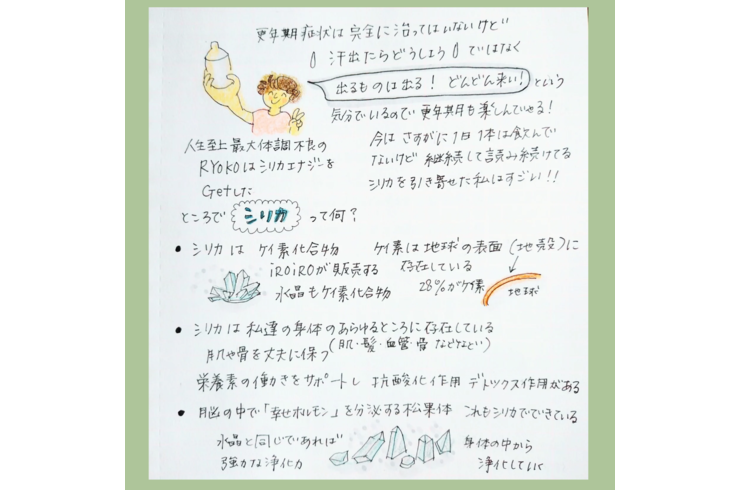 更年期症状は完全に治ってはいないけど
汗出たらどうしよう ではなく
出るものは出る! どんどん来い! という
気分でいるので更年期も楽しんでやる!
人生至上最大体調不良の
RYOKOはシリカエナジーを
Getした
今はさすがに1日1本は飲んで
ないけど 継続して読み続けてる
シリカを引き寄せた私はすごい!!
ところで シリカ って何?
• シリカは ケイ素化合物
iROiROが販売する
水晶もケイ素化合物
ケイ素は地球の表面(地殻)に
存在している
28%がケイ素
地球
• シリカは私達の身体のあらゆるところに存在している
(肌・髪・血管・骨 などなど)
肌や骨を丈夫に保つ
栄養素の働きをサポートし 抗酸化作用 デトックス作用がある
• 脳の中で「幸せホルモン」を分泌する松果体 これもシリカでできている
水晶と同じであれば
強力な浄化力
身体の中から
浄化していく